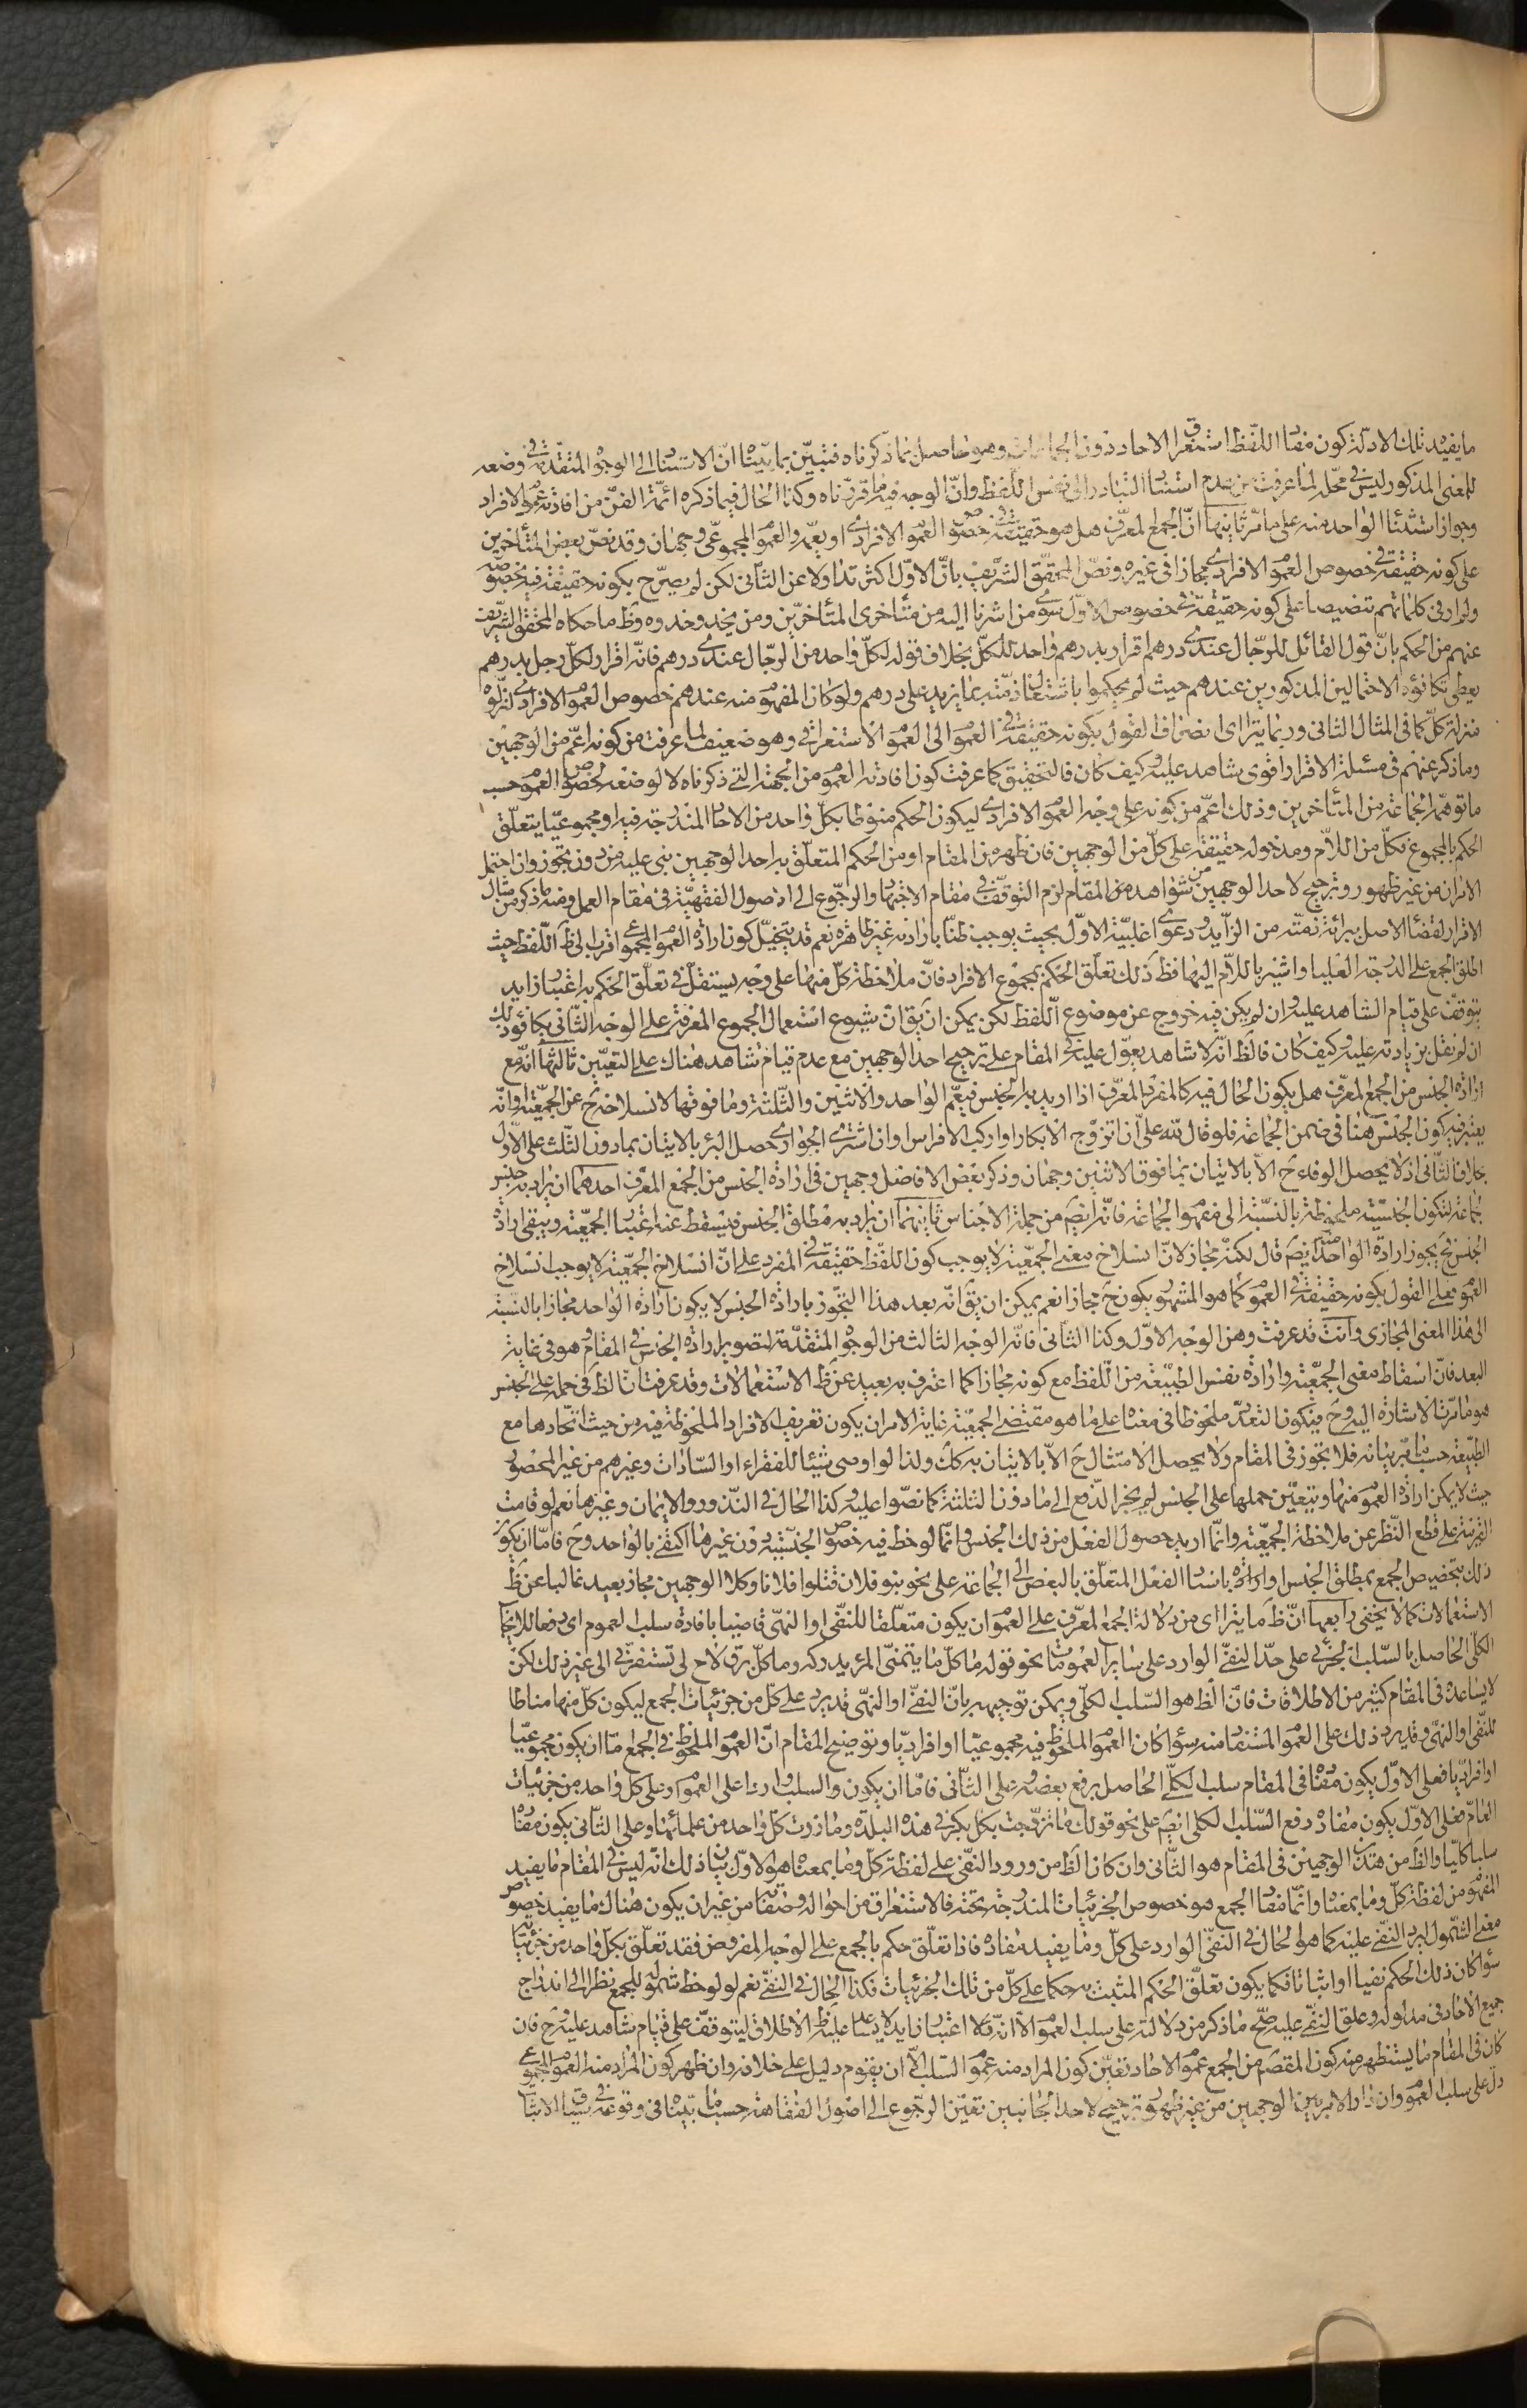 ما يفيد تلك الادلة كون مفاد اللفظ استغراق الاحاد دون الجماعات وهو حاصل بما ذكرناه فتبيّن بما بيّنا انّ الاستناد الى الوجوه المتقدمة في وضعه
للمعنى المذكور ليس في محلّه لما عرفت من عدم استناد التبادر الى نفس اللفظ وانّ الوجه فيه ما قرّرناه وكذا الحال فيما ذكره ائمّة الفنّ من افادته عموم الافراد
وجواز استثناء الواحد منه على ما مرّ ثانيها انّ الجمع المعرّف هل هو حقيقة في خصوص العموم الافرادى او يعمّه والعموم المجموعى وجهان وقد نصّ بعض المتأخرين
على كونه حقيقة في خصوص العموم الافرادى مجازا في غيره ونصّ المحقّق الشريف بانّ الاوّل اكثر تداولا عن الثانى لكن لم يصرّح بكونه حقيقة فيه بخصوصه
ولم ار فى كلماتهم تنصيصا على كونه حقيقة في خصوص الاوّل سوى من اشرنا اليه من متأخرى المتأخّرين ومن يحذو حذوه وظ ما حكاه المحقق الشريف
عنهم من الحكم بانّ قول القائل للرّجال عندى درهم اقرار بدرهم واحد للكلّ بخلاف قوله لكلّ واحد من الرّجال عندى درهم فانّه اقرار لكلّ رجل بدرهم
يعطى تكافؤ الاحتمالين المذكورين عندهم حيث لم يحكموا باشتغال ذمّته بما يزيد على درهم ولو كان المفهوم منه عندهم خصوص العموم الافرادى لنزّلوه
منزلة كلّ كما فى المثال الثانى وربما يترائى انصراف القول بكونه حقيقة في العموم الى العموم الاستغراقى وهو ضعيف لما عرفت من كونه اعمّ من الوجهين
وما ذكر عنهم فى مسئلة الاقرار اقوى شاهد عليه وكيف كان فالتحقيق كما عرفت كون افادته العموم من الجهة التى ذكرناه لا لوضعه لخصوص العموم حسب
ما توهّمه الجماعة من المتأخرين وذلك اعمّ من كونه على وجه العموم الافرادى ليكون الحكم منوطا بكلّ واحد من الاحاد المندرجة فيه او مجموعيّا يتعلّق
الحكم بالمجموع فكلّ من اللّام ومدخوله حقيقة على كلّ من الوجهين فان ظهر من المقام او من الحكم المتعلّق به احد الوجهين بنى عليه من دون تجوز وان احتمل
الامران من غير ظهور وترجيح لاحد الوجهين من شواهد المقام لزم التوقّف فى مقام الاجتهاد والرجّوع الى الاصول الفقهيّة فى مقام العمل ومنه ما ذكر من مثال
الاقرار لقضاء الاصل ببرائة ذمّته من الزّايد ودعوى اغلبيّة الاوّل بحيث يوجب ظنّا بارادته غير ظاهرة نعم قد يتخيّل كون ارادة العموم المجموعى اقرب الى ظ اللّفظ حيث
اطلق الجمع على الدرجة العليا واشير باللّام اليها فظ ذلك تعلّق الحكم بمجموع الافراد فانّ ملاحظة كلّ منها على وجه يستقلّ فى تعلّق الحكم به اعتبار زايد
يتوقّف على قيام الشاهد عليه وان لم يكن فيه خروج عن موضوع اللّفظ لكن يمكن ان يق انّ شيوع استعمال الجموع المعرفة على الوجه الثانى يكافؤ ذلك
ان لم نقل بزيادته عليه وكيف كان فالظ انّه لا شاهد يعوّل عليه فى المقام على ترجيح احد الوجهين مع عدم قيام شاهد هناك على التعيّين ثالثها انّه مع
ارادة الجنس من الجمع المعرّف هل يكون الحال فيه كالمفرد المعرّف اذا اريد به الجنس فيعمّ الواحد والاثنين والثّلثة وما فوقها لانسلاخه ح عن الجمعيّة او انّه
يعتبر فيه كون الجنس هنا فى ضمن الجماعة فلو قال لله علىّ ان اتزوّج الابكار او اركب الافراس وان اشترى الجوارى حصل البرّ بالاتيان بما دون الثّلث على الاوّل
بخلاف الثّانى اذ لا يحصل الوفاء ح الّا بالاتيان بما فوق الاثنين وجهان وذكر بعض الافاضل وجهين فى ارادة الجنس من الجمع المعرّف احدهما ان يراد به جنس
الجماعة لتكون الجنسيّة ملحوظة بالنّسبة الى مفهوم الجماعة فانّه ايضم من جملة الاجناس ثانيهما ان يراد به مطلق الجنس فيسقط عنه اعتبار الجمعيّة ويبقى ارادة
الجنس فح يجوز ارادة الواحد منه ايضم قال لكنّه مجاز لانّ انسلاخ معنى الجمعيّة لا يوجب كون اللفظ حقيقة فى المفرد على انّ انسلاخ الجمعيّة لا يوجب انسلاخ
العموم فعلى القول بكونه حقيقة فى العموم كما هو المشهور يكون ح مجازا نعم يمكن ان يق انّه بعد هذا التجّوز بارادة الجنس لا يكون ارادة الواحد مجازا بالنسبة
الى هذا المعنى المجازى وانت قد عرفت وهن الوجه الاوّل وكذا الثانى فانّه الوجه الثالث من الوجوه المتقدّمة لتصوير ارادة الجنس فى المقام وهو فى غاية
البعد فانّ اسقاط معنى الجمعيّة وارادة نفس الطبيّعة من اللّفظ مع كونه مجازا كما اعترف به بعيد عن ظ الاستعمالات وقد عرفت انّ الظ فى حمله على الجنس
هو ما مرّت الاشارة اليه وح فيكون التعدّد ملحوظا فى معناه على ما هو مقتضى الجمعيّة غاية الامر ان يكون تعريف الافراد الملحوظة فيه من حيث اتّحادها مع
الطبيّعة حسب ما مرّ بيانه فلا تجوز فى المقام ولا يحصل الامتثال ح الّا بالاتيان به كك ولذا لو اوصى شيئا للفقراء او السّادات وغيرهم من غير المحصور
حيث لا يمكن ارادة العموم منها ويتعيّن حملها على الجنس لم يجز الدّفع الى ما دون الثلثة كما نصّوا عليه وكذا الحال فى النّذور والايمان وغيرها نعم لو قامت
القرينة على قطع النّظر عن ملاحظة الجمعيّة وانّما اريد حصول الفعل من ذلك الجنس وانّما لوحظ فيه خصوص الجنسيّة دون غيرها اكتفى بالواحد وح فامّا ان يكون
ذلك بتخصيص الجمع بمطلق الجنس او ارادة باسناد الفعل المتعلّق بالبعض الى الجماعة على نحو بنو فلان قتلوا فلانا وكلا الوجهين مجاز بعيد غالبا عن ظ
الاستعمالات كما لا يخفى رابعها انّ ظ ما يترائ من دلالة الجمع المعرّف على العموم ان يكون متعلّقا للنفى او النهى قاضيا بافادة سلب العموم اى رفعا للايجاب
الكلّى الحاصل بالسّلب الجزئى على حدّ النفى الوارد على سائر العمومات نحو قوله ما كلّ ما يتمنّى المرء يدركه وما كلّ برق لاح لى تستفزّنى الى غير ذلك لكن
لا يساعده فى المقام كثير من الاطلاقات فانّ الظ هو السّلب الكلّى ويمكن توجيهه بانّ النفى او النهى قد يرد على كلّ من جزئيات الجمع ليكون كلّ منها مناطا
للنّفى او النهى وقد يرد ذلك على العموم المستفاد منه سواء كان العموم الملحوظ فيه مجموعيّا او افراديّا وتوضيح المقام انّ العموم الملحوظ فى الجمع امّا ان يكون مجموعيّا
او افراديّا فعلى الاوّل يكون مفاده فى المقام سلب الكلّى الحاصل برفع بعضه وعلى الثّانى فامّا ان يكون والسلب واردا على العموم او على كلّ واحد من جزئيات
العامّ فعلى الاوّل يكون مفاده رفع السّلب الكلى ايضم على نحو قولك ما تزوّجت بكل بكر فى هذه البلدة وما زرت كلّ واحد من علمائها وعلى الثانى يكون مفاده
سلبا كليّا والظ من هذين الوجهين فى المقام هو الثّانى وان كان الظ من ورود النّفى على لفظة كلّ وما بمعناه هو الاوّل بيان ذلك انّه ليس فى المقام ما يفيد
المفهوم من لفظة كلّ وما بمعناه وانّما مفاد الجمع هو خصوص الجزئيات المندرجة تحته فالاستغراق من احواله وصفاته من غير ان يكون هناك ما يفيد خصوص
معنى الشّمول ليرد النّفى عليه كما هو الحال فى النّفى الوارد على كلّ وما يفيد مفاده فاذا تعلّق حكم بالجمع على الوجه المفروض فقد تعلّق بكلّ واحد من جزئياته
سواء كان ذلك الحكم نفيا او اثباتا فكما يكون تعلّق الحكم المثبت به حكما على كلّ من تلك الجزئيات فكذا الحال فى النفى نعم لو لوحظ شموله للجمع نظرا الى اندراج
جميع الاحاد فى مدلوله وعلق النّفى عليه صّح ما ذكر من دلالته على سلب العموم الّا انّه اعتبار زايد لا يساعد عليه ظ الاطلاق ليتوقّف على قيام شاهد عليه ح فان
كان فى المقام ما يستظهر منه كون المقصم من الجمع عموم الاحاد تعيّن كون المراد منه عموم السّلب الّا ان يقوم دليل على خلافه وان ظهر كون المراد منه العموم المجموعى
دلّ على سلب العموم وان دار الامر بين الوجهين من غير ظهور وترجيح لاحد الجانبين تعيّن الرجّوع الى اصول الفقاهة حسب ما بيّناه فى وقوعه فى سياق الاثبات